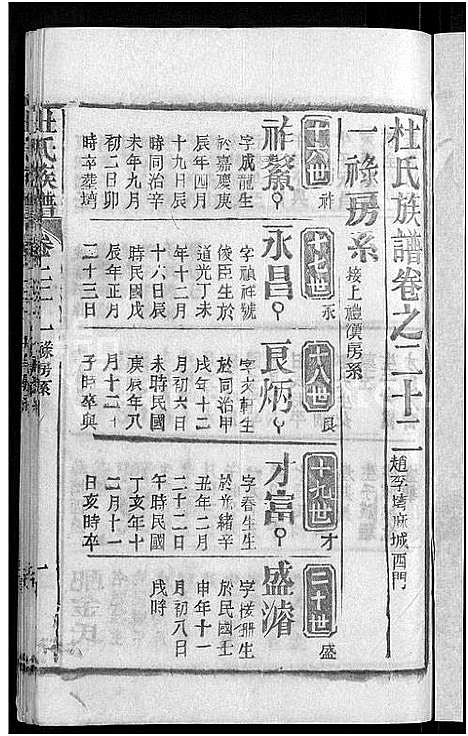 杜氏族譜卷之二十二 趙李塆麻城西門
一祿房系 接上禮漢房系
十六世 祚
祚鰲
字成龍生
於嘉慶東
辰年四月
十九日辰
時同治辛
未年九月
初二日卯
時卒葬塆
十七世 永
永昌
字禎祥號
俊臣生於
道光丁未
年十二月
十六日辰
時民國戊
辰年正月
二十三日
十八世 良
良炳
字文軒生
於同治甲
戌年十二
月初六日
未時民國
庚辰年八
月十二
子時卒與
十九世 才
才富
字春生生
於光緒辛
丑年二月
二十二日
午時民國
丁亥年十
二月十一
日亥時卒
二十世 盛
盛濬
於民國壬
申年十一
月初八日
戌時
杜氏族譜 卷二十二 一祿房系